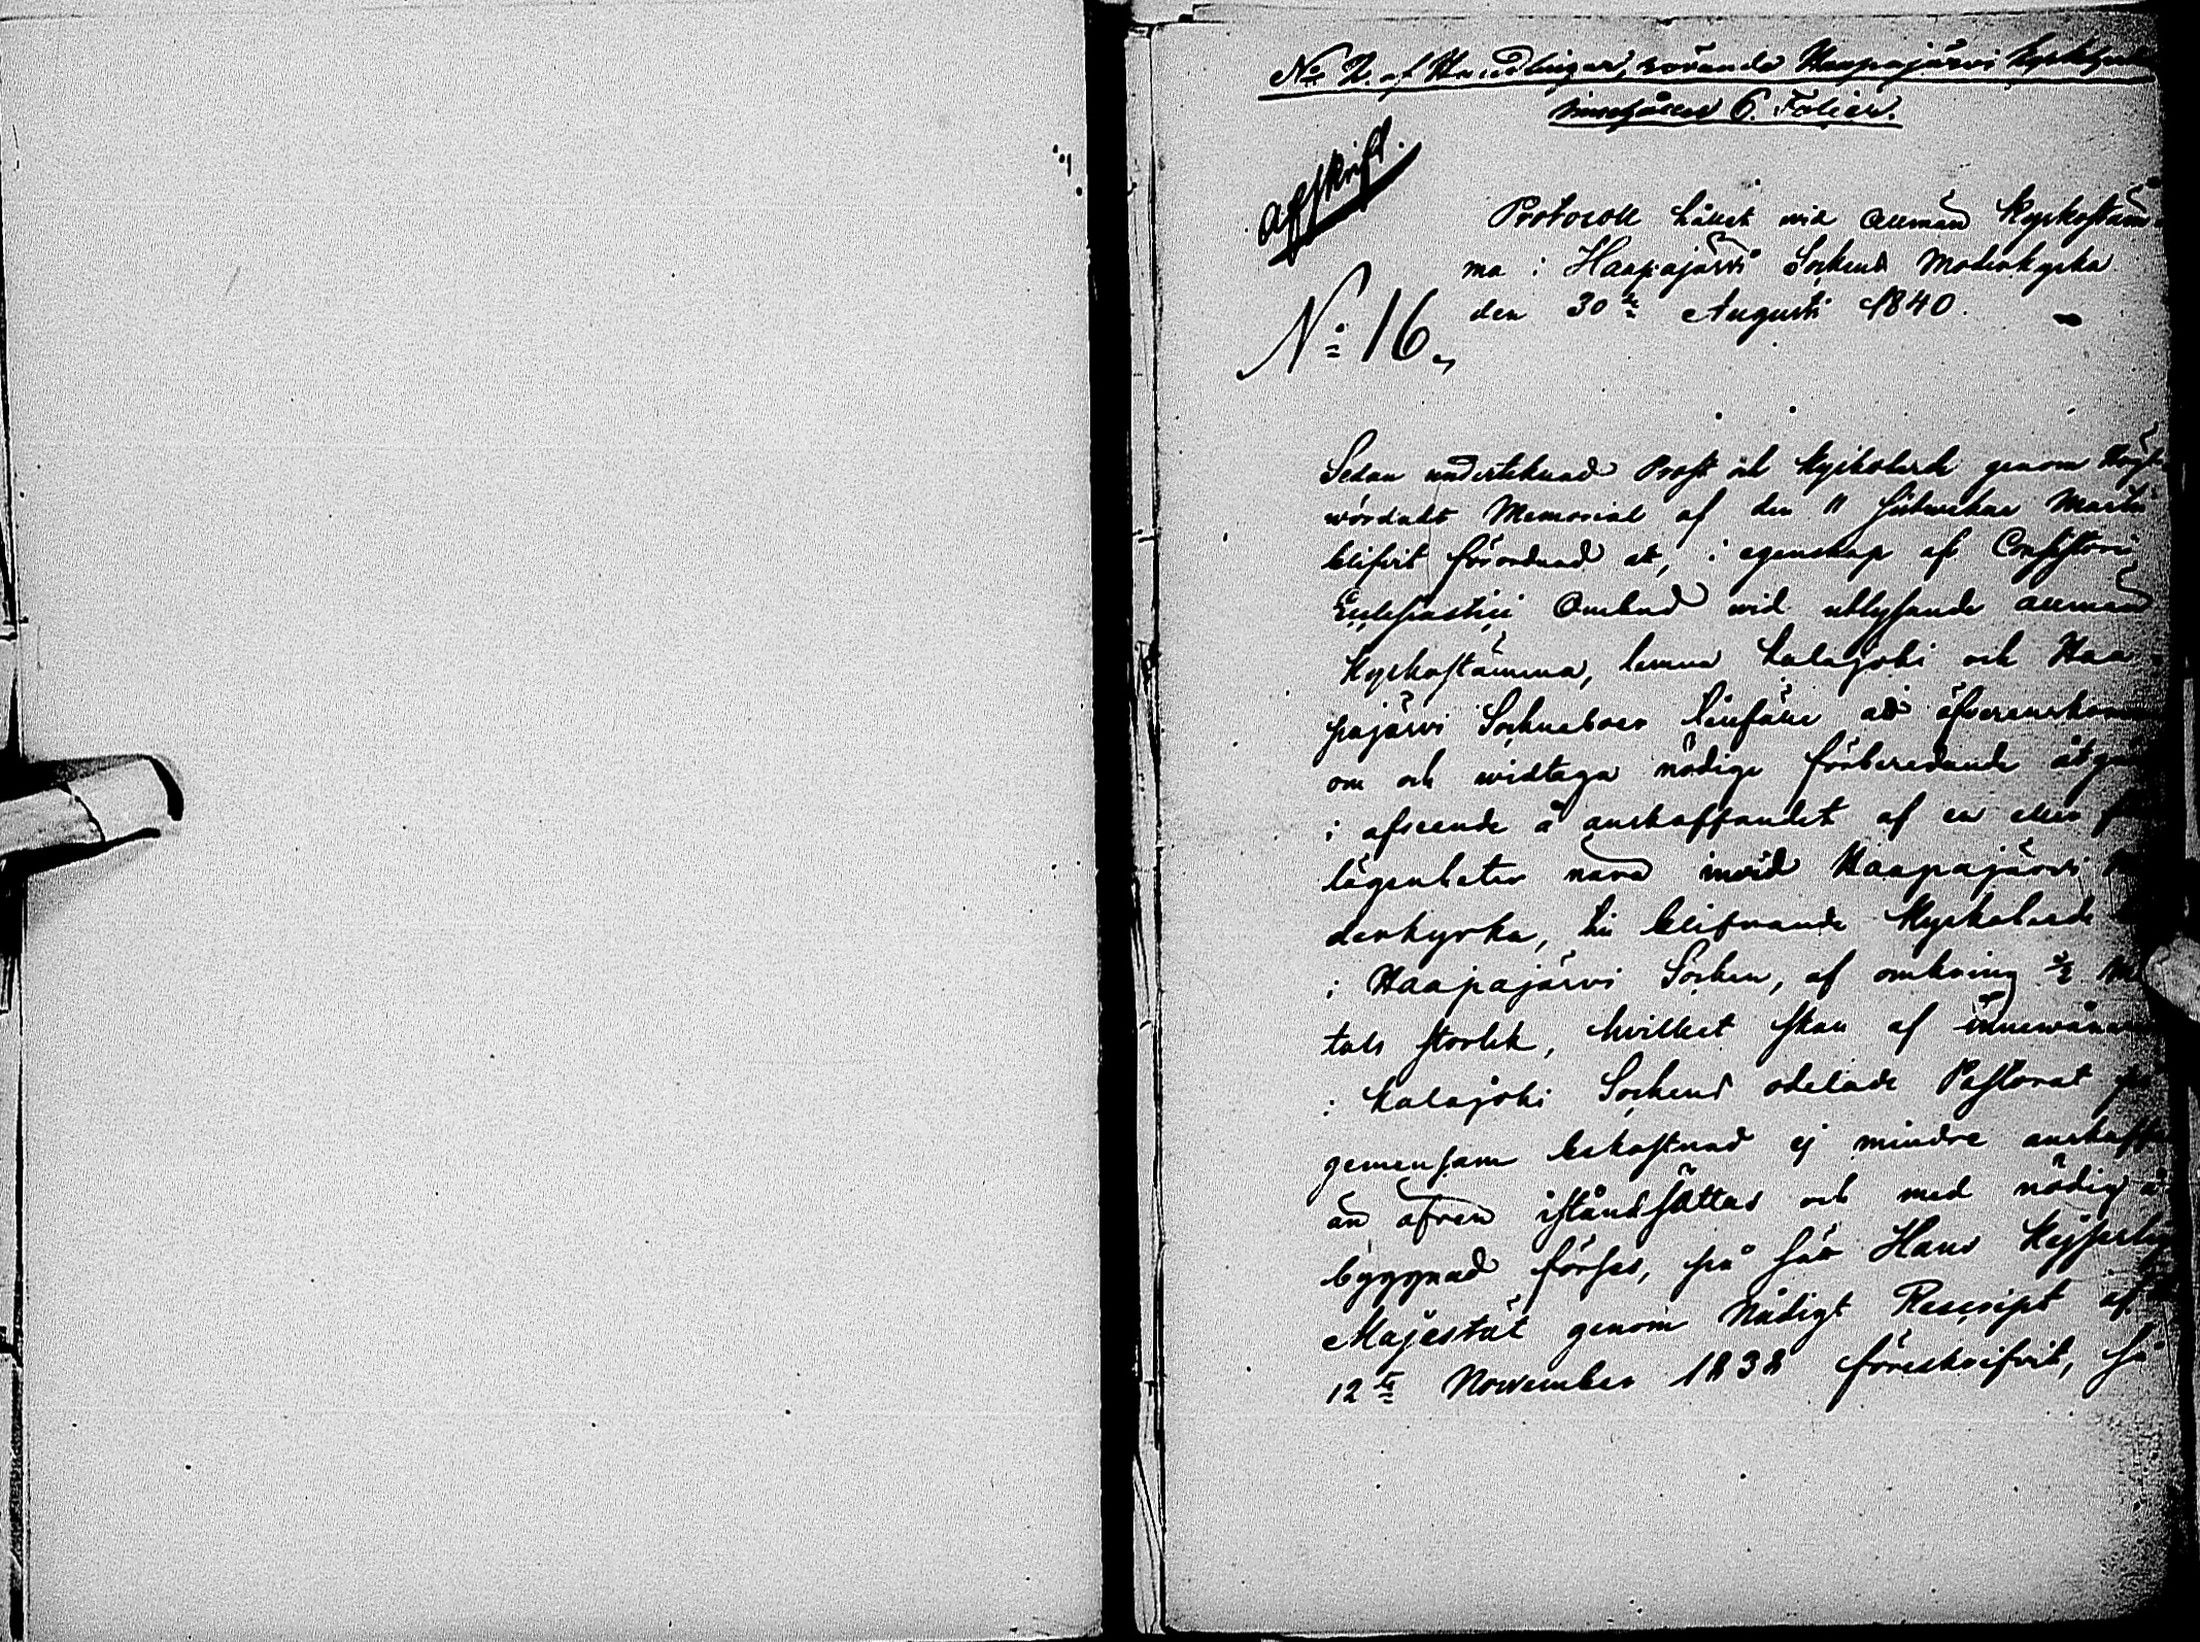 No 2. af Handlingar, rörande Haapajärvi
innehåller 6. Folier.
Afskrift.
Protocoll hållet wid Allmän Kyrkostäm
ma i Haapajärvi Sockens Moderkyrka
den 30de Augusti 1840.
No 16.
Sedan undertecknad Prost och Kyrkoherde genom Högt
wördadt Memorial af den 11 sistwekne Martii
blifvit förordnad at, i egenskap af Consistorii
Ecclesiastici Ombud wid utlysande allmän
Kyrkostämma, lemna Kalajoki och Haa
pajärvi Sockneboer tillfälle att öfverenskomma
om och widtaga nödige förberedande åtgär
i afseende å anskaffandet af en eller
lägenheter nära inwid Haapajärvi
derkyrka, till blifvande Kyrkoherde
i Haapajärvi Socken, af omkring 1/2
tals storlek, hvilket skall af innewånarne
i Kalajoki Sockens odelade Pastorat
gemensam bekostnad ej mindre anskaffas
än äfven iståndsättas och med nödig å
byggnad förses, på sätt Hans Kejserlige
Majestät genom Nådigt Rescript af
12te November 1838 föreskrifvit, så